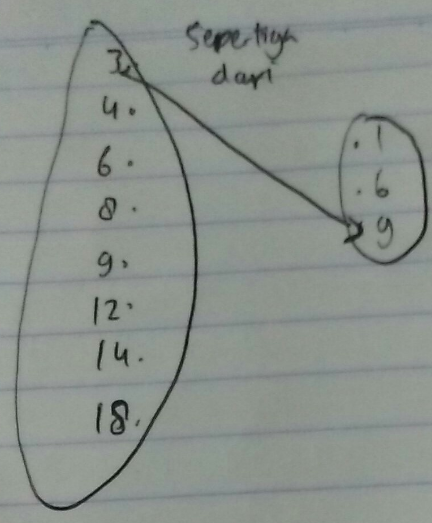 Sepertiga
dari
3.
4.
6.
8.
9.
12.
14.
18.
.1
.6
9